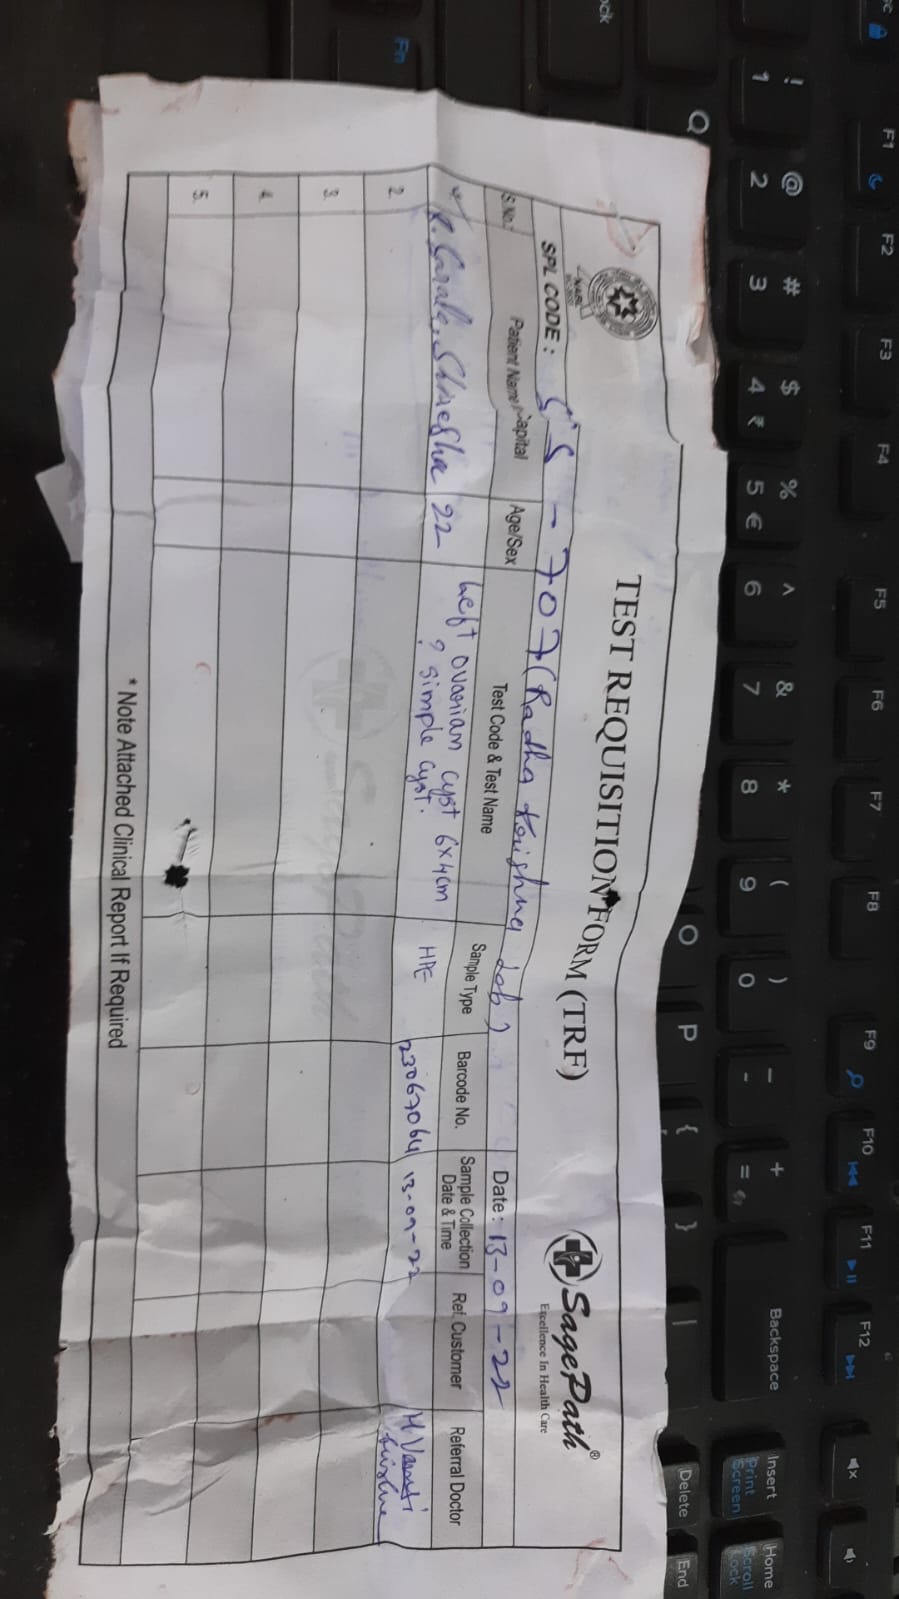 TEST REQUISITION FORM (TRF)
SagePath®
Excellence In Health Care
NABL
SPL CODE : - 707 (Radha Krishna Lab)
Date: 13-09-22
S.No.: Patient Name Capital Age/Sex Test Code & Test Name Sample Type Barcode No. Sample Collection Date & Time Ref. Customer Referral Doctor
22 Left ovarian cyst 6x4cm HPE 23067064 13-09-22
? simple cyst.
2
3
4
5.
* Note Attached Clinical Report If Required
Fn
Q
O
P
{
}
|
!
1
@
2
#
3
$
4 ₹
%
5 €
^
6
&
7
*
8
(
9
)
0
-
+
=
Backspace
Delete
End
Insert
Print
Screen
Home
Scroll
Lock
F1
F2
F3
F4
F5
F6
F7
F8
F9
F10
F11
F12